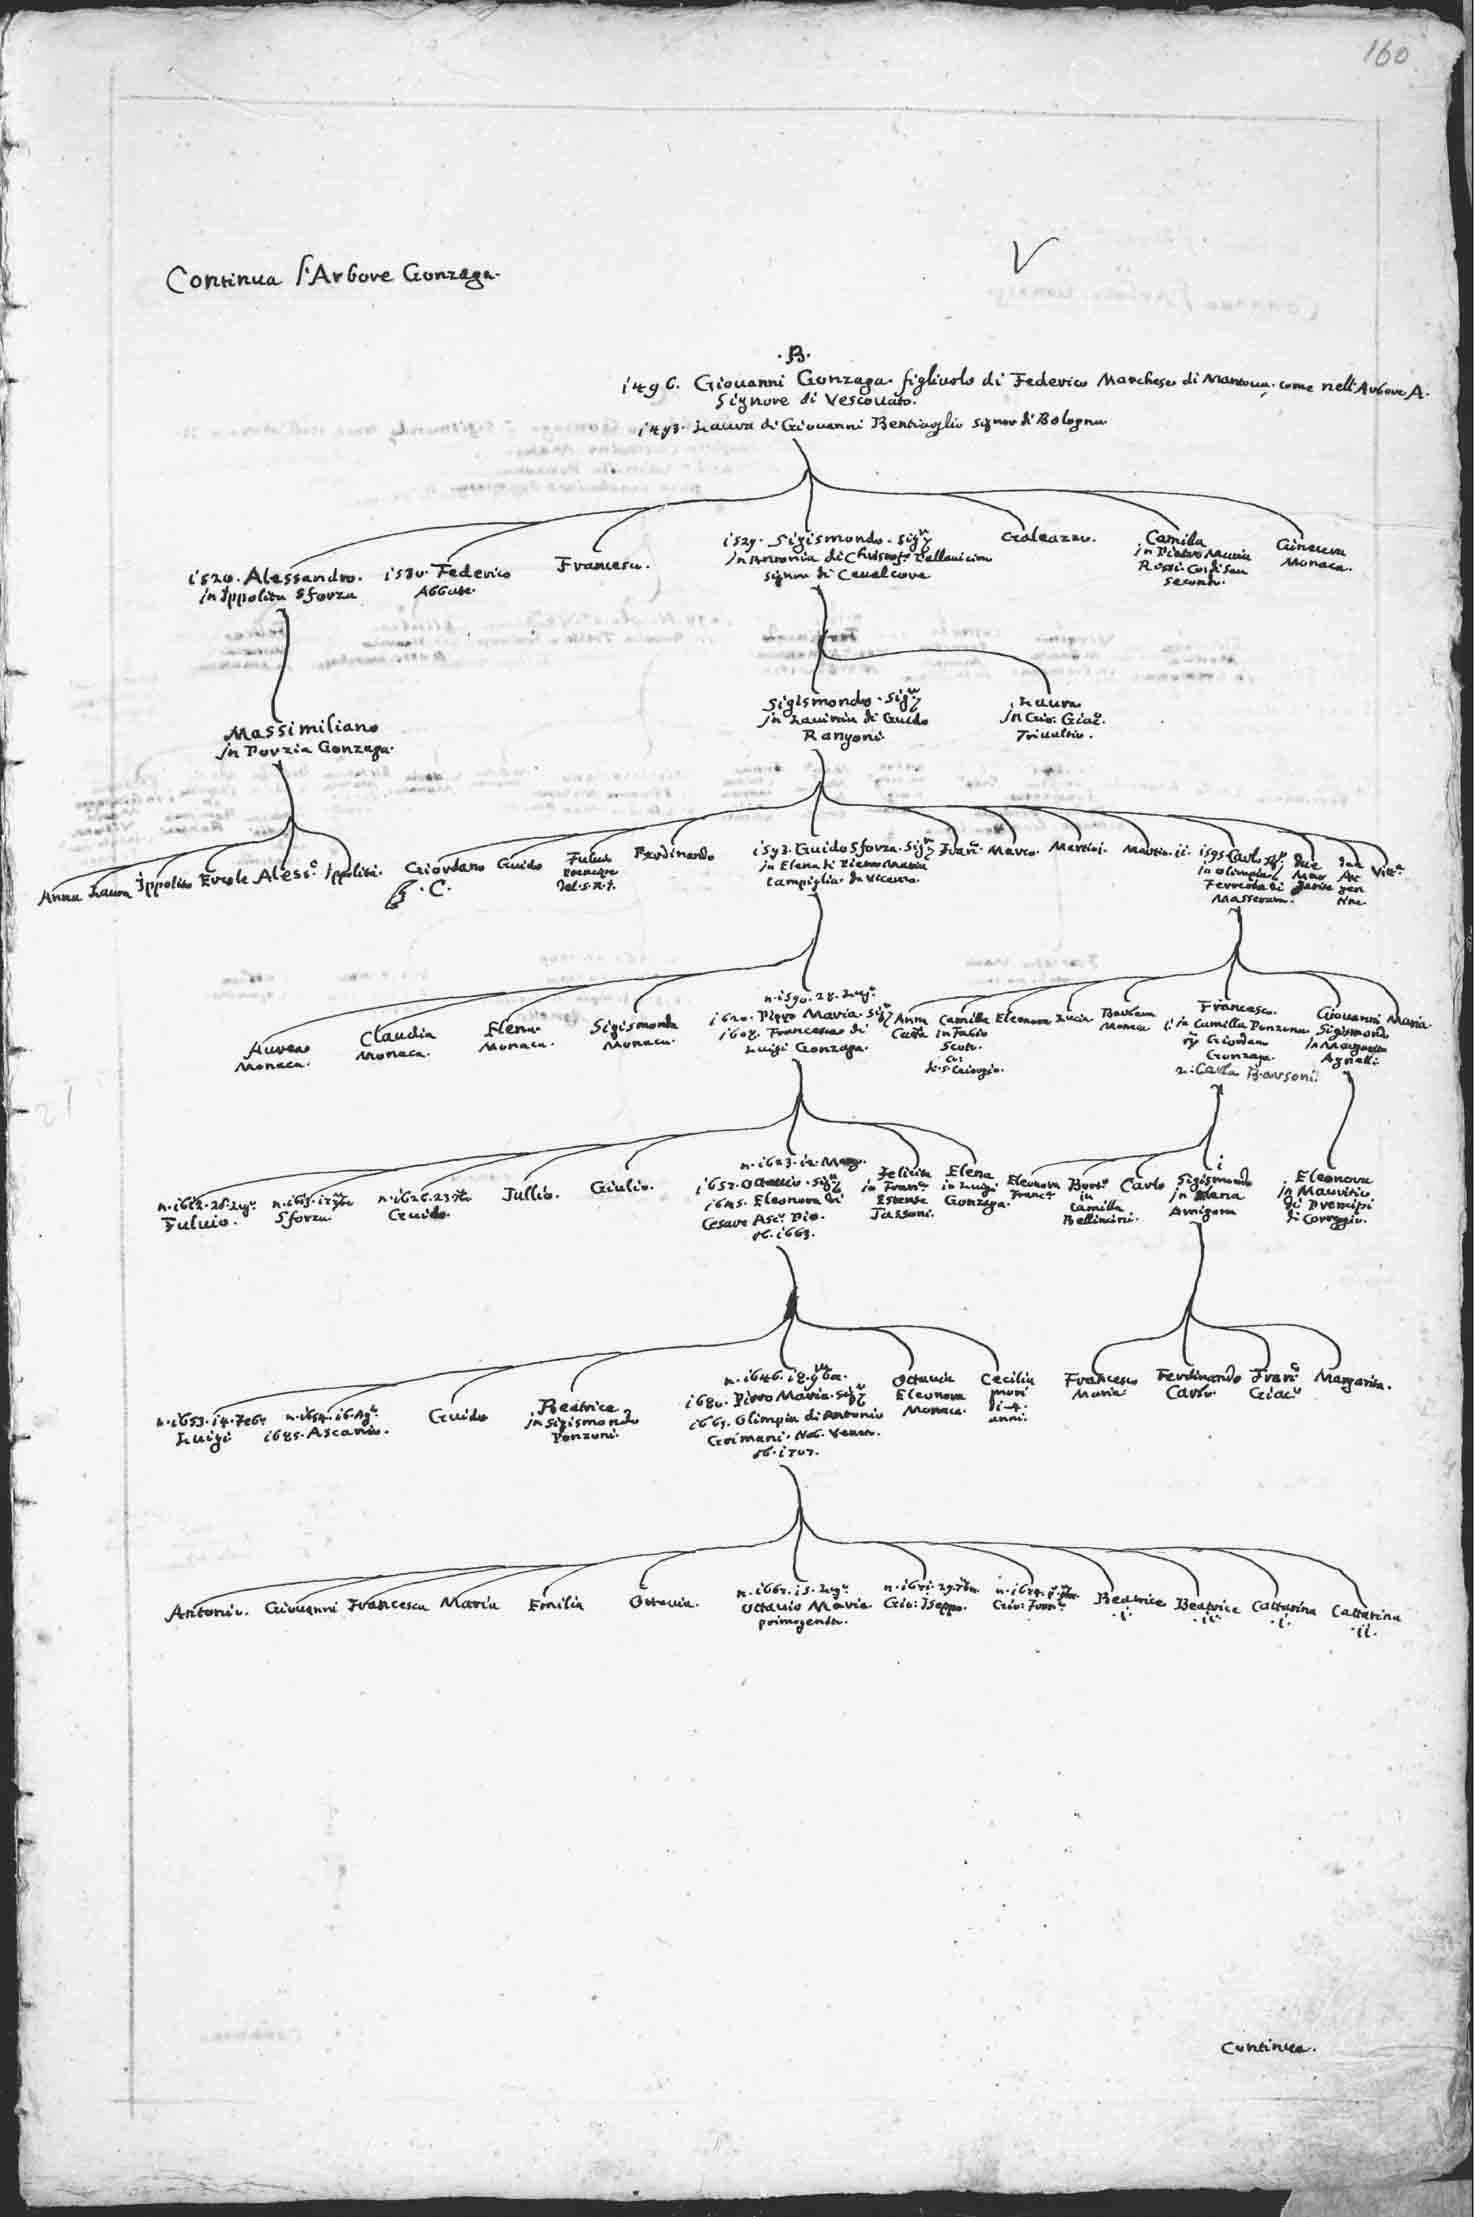 160
V
Continua l'Arbore Gonzaga.
.B.
1496. Giouanni Gonzaga. figliuolo di Federico Marchese di Mantoua. come nell'Arbore A.
Signore di Vescouato.
1493. Laura di Giouanni Bentiuoglio signor di Bologna
1520. Alessandro.
in Ippolita Sforza
1530. Federico
Abbate.
Francesca.
1529. Sigismondo. Sig.r
in Antonia di Christof.o Pallauicin
signor di
Galeazzo.
Camilla
in Pietro Maria
Rossi. Co: di San
secondo.
Gineura
Monaca.
Massimiliano
in Porzia Gonzaga.
Sigismondo. Sig.r
in Lauinia di Guido
Rangoni
Laura
in Gio: Giac.o
Triultio.
Anna
Laura
Ippolito
Ercole
Aless.o
Ippolita.
Giordano
.C.
Guido
Fuluio
Ferdinando
1593. Guido Sforza. Sig.r
in Elena di Pietro Maria
Campiglia da Vicenza.
Fran.o
Marco.
Martio i.
Martio. ii.
1595 Carlo Sig.r
in Olimpia
Ferrera di
Masseran.
due
Vitt.a
Aurea
Monaca.
Claudia
Monaca.
Elena
Monaca.
Sigismonda
Monaca.
n. 1590. 28. Lug.o
1620. Pirro Maria. Sig.r
1608. Francesca di
Luigi Gonzaga.
Anna
Camilla
in Fabio
Scoti.
Co:
di S. Giorgio.
Eleonora
Lucia
Barbara
Monaca
Francesco.
1. in Camilla Ponzona
Giordan
Gonzaga.
2. Carla Barsoni.
Giouanni
Sigismondo
in Margarita
Agnelli.
Maria
n. 1612. 26. Lug.o
Fuluio.
Sforza.
n. 1626. 23
Guido.
Tullio.
Giulio.
n. 1623. 12. Mag.
1652. Ottauio. Sig.r
1645. Eleonora di
Cesare Asc.o Pio.
ob. 1663.
Felicita
in Fran.o
Estense
Tassoni.
Elena
in Luigi
Gonzaga.
Eleonora
Franc.a
Bort.o
in
Camilla
Bellimini.
Carlo
i
Sigismondo
in Maria
Amigona
Eleonora
in Mauritio
di Prencipi
di Correggio.
n. 1653. 14. Feb.
Luigi
n. 1654. 16. Ag.o
1685. Ascanio.
Guido
Beatrice
in Sigismondo
Ponzoni.
n. 1646. 18. 9bre.
1680. Pirro Maria. Sig.r
1665. Olimpia di Antonio
Grimani. Nob. Veneto.
ob. 1707.
Ottauia
Eleonora
Monaca
Cecilia
morì
di 4.
anni.
Francesco
Maria
Ferdinando
Carlo
Fran.o
Giac.o
Margarita.
Antonio.
Giouanni
Francesca
Maria
Emilia
Ottauia.
n. 1667. 15. Lug.o
Ottauio Maria
primogenito.
n. 1671. 29. 7bre.
Gio: Iseppo.
Gio: Fran.o
Beatrice
.i.
Beatrice
.ii.
Cattarina
.i.
Cattarina
.ii.
Continua.